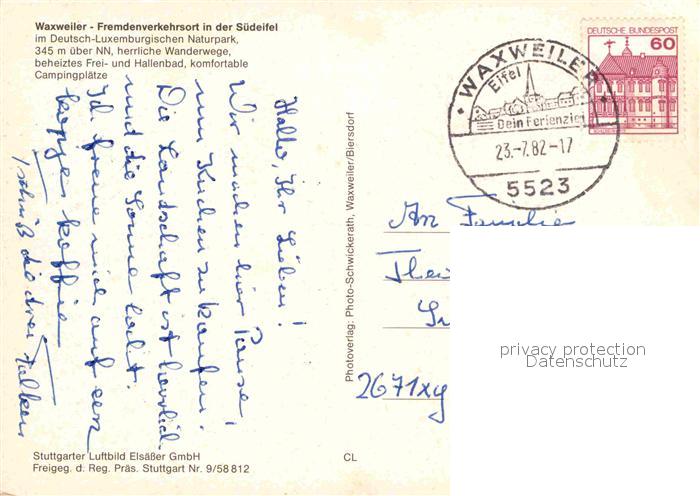 Waxweiler - Fremdenverkehrsort in der Südeifel
im Deutsch-Luxemburgischen Naturpark,
345 m über NN, herrliche Wanderwege,
beheiztes Frei- und Hallenbad, komfortable
Campingplätze
Hallo, Ihr Lieben!
Wir machen hier Pause,
um Kuchen zu kaufen.
Die Landschaft ist herrlich
und die Sonne lacht.
Ich freue mich auf
die drei
Stuttgarter Luftbild Elsäßer GmbH
Freigeg. d. Reg. Präs. Stuttgart Nr. 9/58 812
CL
Photoverlag: Photo-Schwickerath, Waxweiler/Biersdorf
DEUTSCHE BUNDESPOST
60
WAXWEILER
Eifel
Dein Ferienziel
23.-7.82-17
5523
An Familie
2671xy
privacy protection
Datenschutz